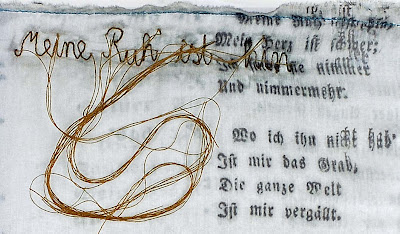 Meine Ruh ist
Meine Ruh
Mein Herz ist schwer;
nimmer
Und nimmermehr.
Wo ich ihn nicht hab'
Ist mir das Grab,
Die ganze Welt
Ist mir vergällt.